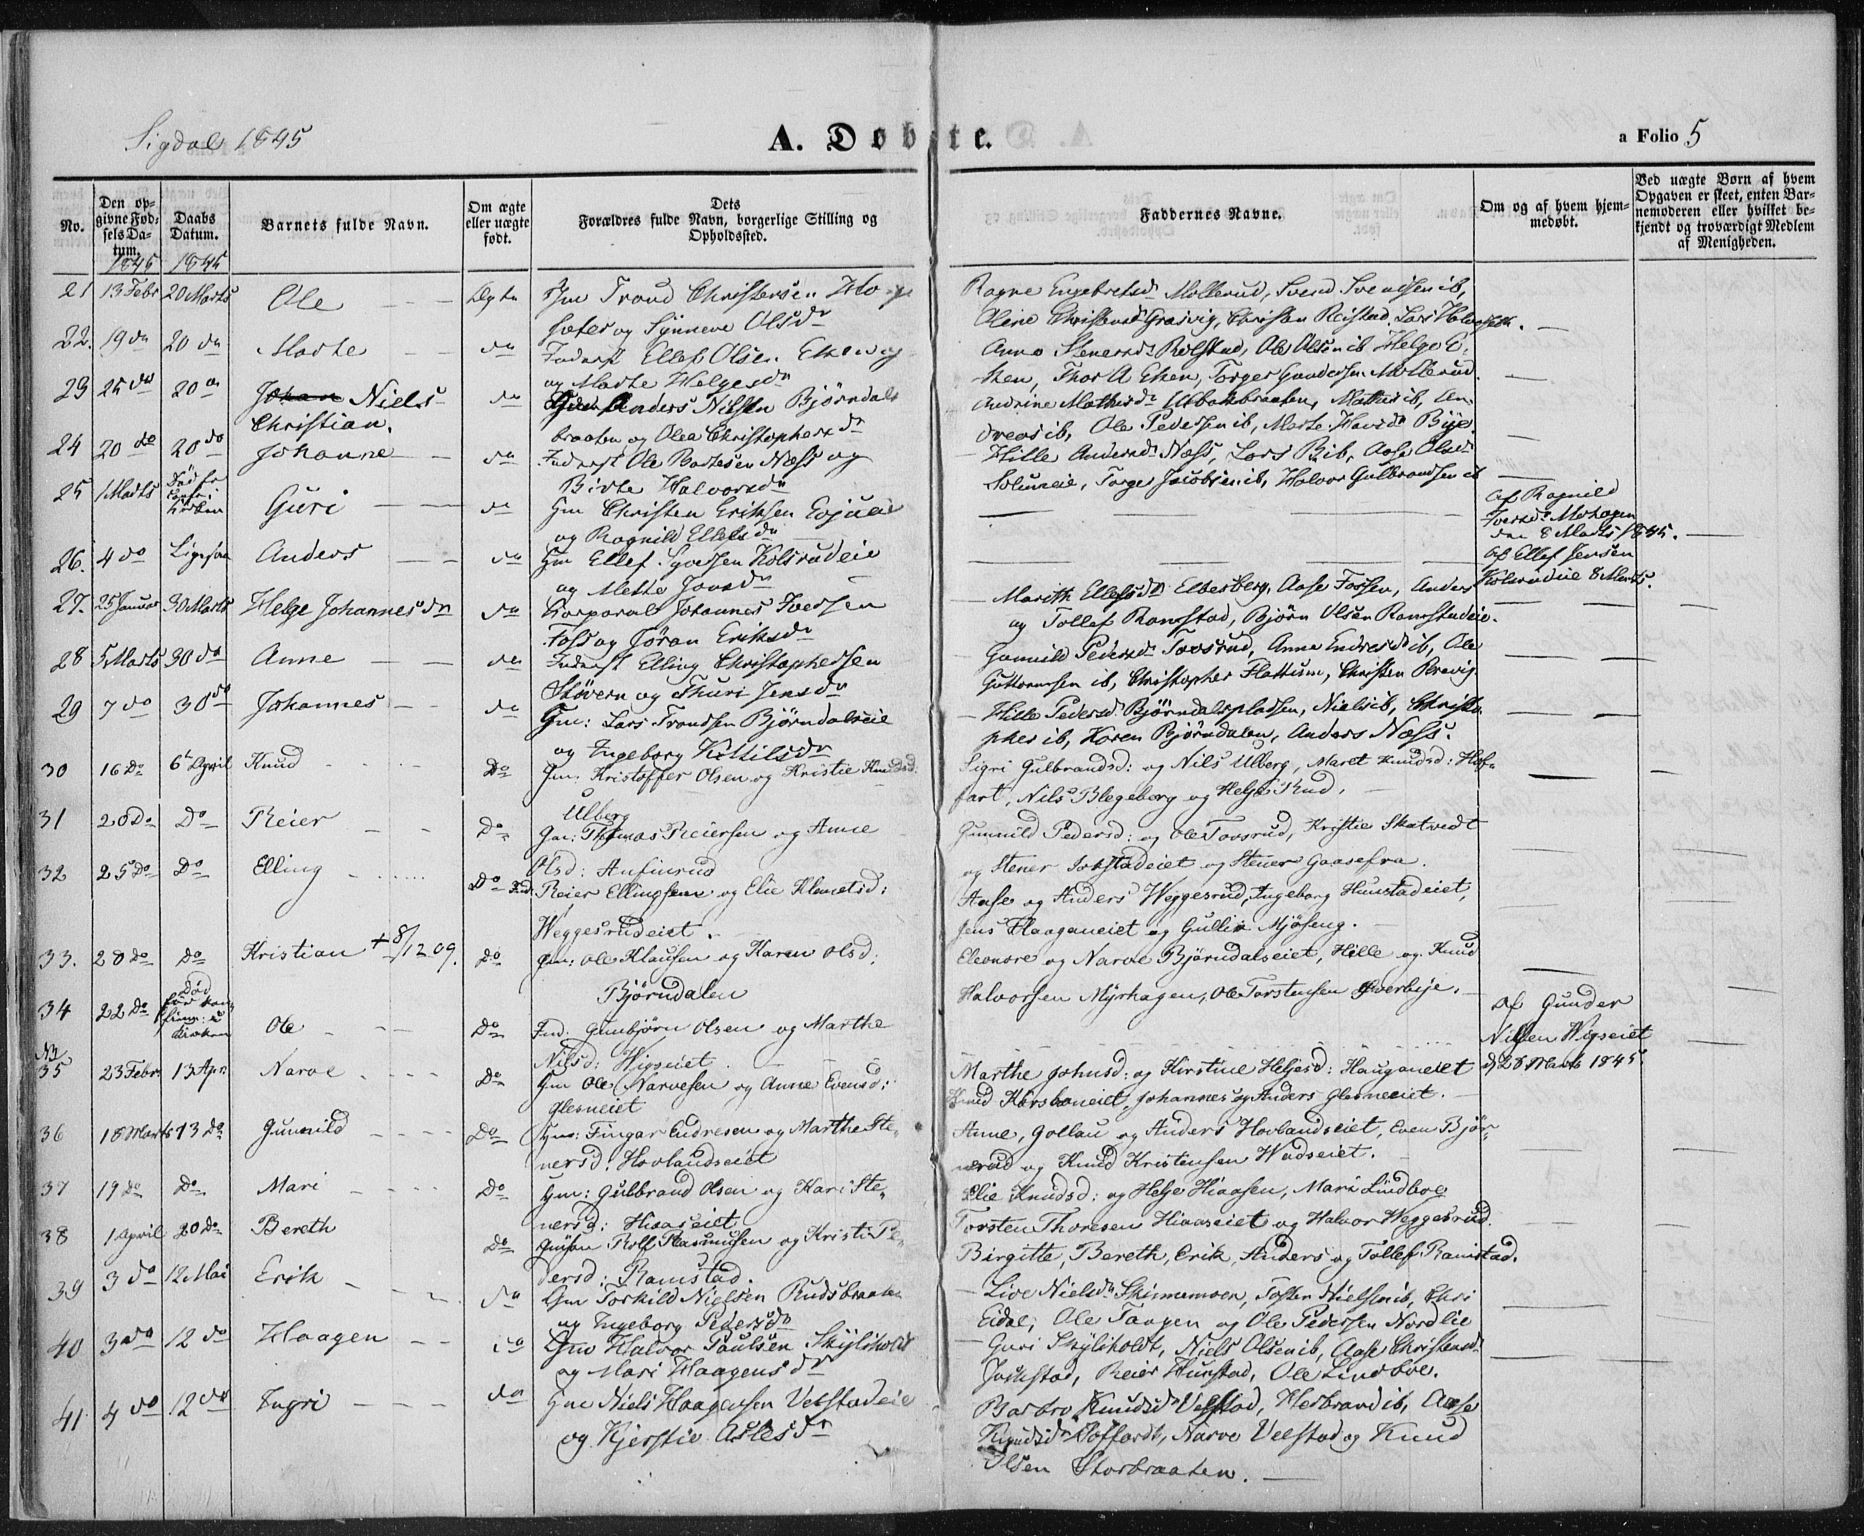 Sigdal 1845
A. Døbte.
a Folio 5
No.
Den opgivne Fødsels Datum.
Daabs Datum.
Barnets fulde Navn.
Om ægte eller uægte født.
Dets Forældres fulde Navn, borgerlige Stilling og Opholdssted.
Faddernes Navne.
Om og af hvem hjemmedøbt.
Ved uægte Børn af hvem Opgaven er skeet, enten Barnemoderen eller hvilket bekjendt og troværdigt Medlem af Menigheden.
1845 1845
21 13 Febr 20 Marts Ole Ægte Gm Trond Christensen
sæter og Synneve Olsdr
Ragne Engebretsdr Mollerud, Svend Svendsen ib,
Oline Christensdr Grasvig, Christen Reistad, Lars
22. 19 do 20 do Marte do Inderst Ellef Olsen Eken
og Marte Helgesdr
Anne Stenersdr Rolstad, Ole Olsen ib Helge E
ken, Thor A Eken, Torger Gundersen Mollerud
23 25 do 20 Johan Niels Christian. do Anders Nilsen Bjørndals
braaten og Olea Christophersdr
Andrine Mathisdr Ulbaksbraaten, Mathis ib, An
dreas ib, Ole Pedersen ib, Marte Bye
24 20 do 20 do Johanne do Inderst Ole Næss og
Birte Halvorsdr
Hille Andersdr Næss, Lars ib, Aase Olsdr
Solumeie, Torger Jacobsen ib, Halvor Gulbrandsen ib
25 1 Marts Død før Conf: i Kirken Guri do Gm Christen Eriksen Enjueie
og Ragnild Ellefsdr
Af Ragnild
Iversdr Morhagen
den 8 Marts 1845.
26. 4 do Ligesaa Anders do Gm Ellef Syversen Kolsrudeie
og Mette Jonsdr
Af Ellef Jensen
Kolsrudeie 8 Marts.
27. 25 Januar 30 Marts Helge Johannesdr do Corporal Johannes Iversen
Foss og Jøran Eriksdr
Marith Ellefsdr Elbesberg, Aase Fossen, Anders
og Tollef Ramstad, Bjørn Olsen Ramstadeie.
28 5 Marts 30 do Anne do Inderst Elling Christophersen
Støvern og Thuri Jensdr
Gunnild Pedersdr Tovsrud, Anne Endresdr ib, Ole
Guttormsen ib, Christopher Flattum, Christen Prævig
29 7 do 30 do Johannes do Gm: Lars Trondsen Bjørndalseie
og Ingeborg Kittilsdr
Hille Pedersdr Bjørndalspladsen, Niels ib, Christo
pher ib, Karen Bjørndalen, Anders Næss.
30 16 Do 6t April Knud Do Gm: Kristoffer Olsen og Kristie Knudsd:
Ulberg
Sigri Gulbrandsd: og Nils Ulberg, Maret Knudsd: Hof
fart, Nils Blegeberg og Helge Rud.
31 20 Do Do Reier Do Gm: Thomas Reiersen og Anne
Olsd: Anfinrud
Gunnild Pedersd: og Ole Tovsrud, Kristie Skatvedt
og Stener Jokstadeiet og Stener Gaasefra.
32 25 Do Do Elling Do Ind: Reier Ellingsen og Elie Klemetsd:
Weggesrudeiet.
Aase og Anders Weggesrud, Ingeborg Hunstadeiet,
Jens Haaganeiet og Gullik Mjøseng.
33. 28 Do Do Kristian + 8/12 09. Do Gm: Ole Klausen og Karen Olsd:
Bjørndalen
Eleonore og Narve Bjørndalseiet, Hille og Knud
Halvorsen Myrhagen, Ole Torstensen Øverbye.
34 22 Do Død før Konfirm: i Kirken Ole Do Ind: Gunbjørn Olsen og Marthe
Nilsd: Wigseiet
Af Gunder
Nilsen Wigseiet
d 28 Marts 1845
35 23 Febr 13 Apr: Narve Do Gm Ole Narvesen og Anne Evensd:
Glesneiet
Marthe Johnsd: og Kirstine Helgesd: Hauganeiet
Knud Johannes og Anders Glesneeiet.
36 18 Marts 13 Do Gunnild Do Gm: Fingar Endresen og Marthe Ste
nersd: Hovlandseiet
Anne, Gollau og Anders Hovlandseiet, Even Bjør
nerud og Knud Kristensen Wadseiet.
37 19 Do Do Mari Do Gm: Gulbrand Olsen og Kari Ste
nersd: Hiaaseiet
Elie Knudsd: og Helge Hiaasen, Mari Lindboe
Torsten Thoresen Hiaaseiet og Halvor Weggesrud.
38 1 April 20 Do Bereth Do Rolf Rasmusen og Kristi Pe
dersd: Ramstad.
Birgitte, Bereth, Erik, Anders og Tollef Ramstad.
39 3 do 12 Mai Erik do Gm Torkild Nielsen Rudsbraaten
og Ingeborg Pedersdr
Live Nielsdr Skinnemoen, Tosten Nielsen ib,
Eidal, Ole Taagen og Ole Pedersen Nordlie
40 3 do 12 do Haagen do Gm Halvor Paulsen Skjelsholdt
og Mari Haagensdr
Guri Skjelsholdt, Niels Olsen ib, Aase Christensdr
Jokstad, Reier Hunstad, Ole Lindboe.
41 4 do 12 do Ingri do Gm Niels Haagensen Velstadeie
og Kjerstie Aslesdr
Barbro Knudsdr Velstad, Herbrand ib, Aase
Knudsdr Hoffardt, Narve Velstad og Knud
Olsen Storbraaten.